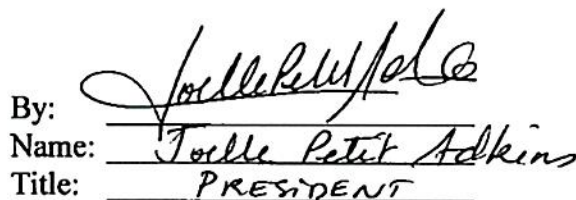 By: Joelle Petit Adkins
Name: Joelle Petit Adkins
Title: PRESIDENT